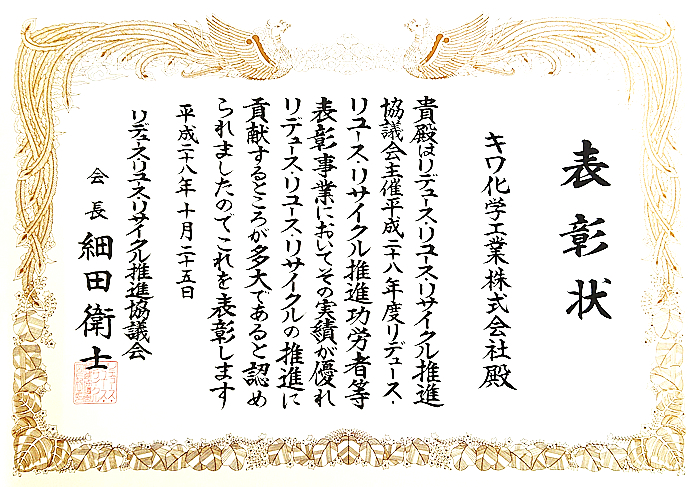 表彰状
キワ化学工業株式会社殿
貴殿はリデュース・リユース・リサイクル推進
協議会主催平成二十八年度リデュース・
リユース・リサイクル推進功労者等
表彰事業においてその実績が優れ
リデュース・リユース・リサイクルの推進に
貢献するところが多大であると認め
られましたのでこれを表彰します
平成二十八年十月二十五日
リデュース・リユース・リサイクル推進協議会
会長 細田衛士